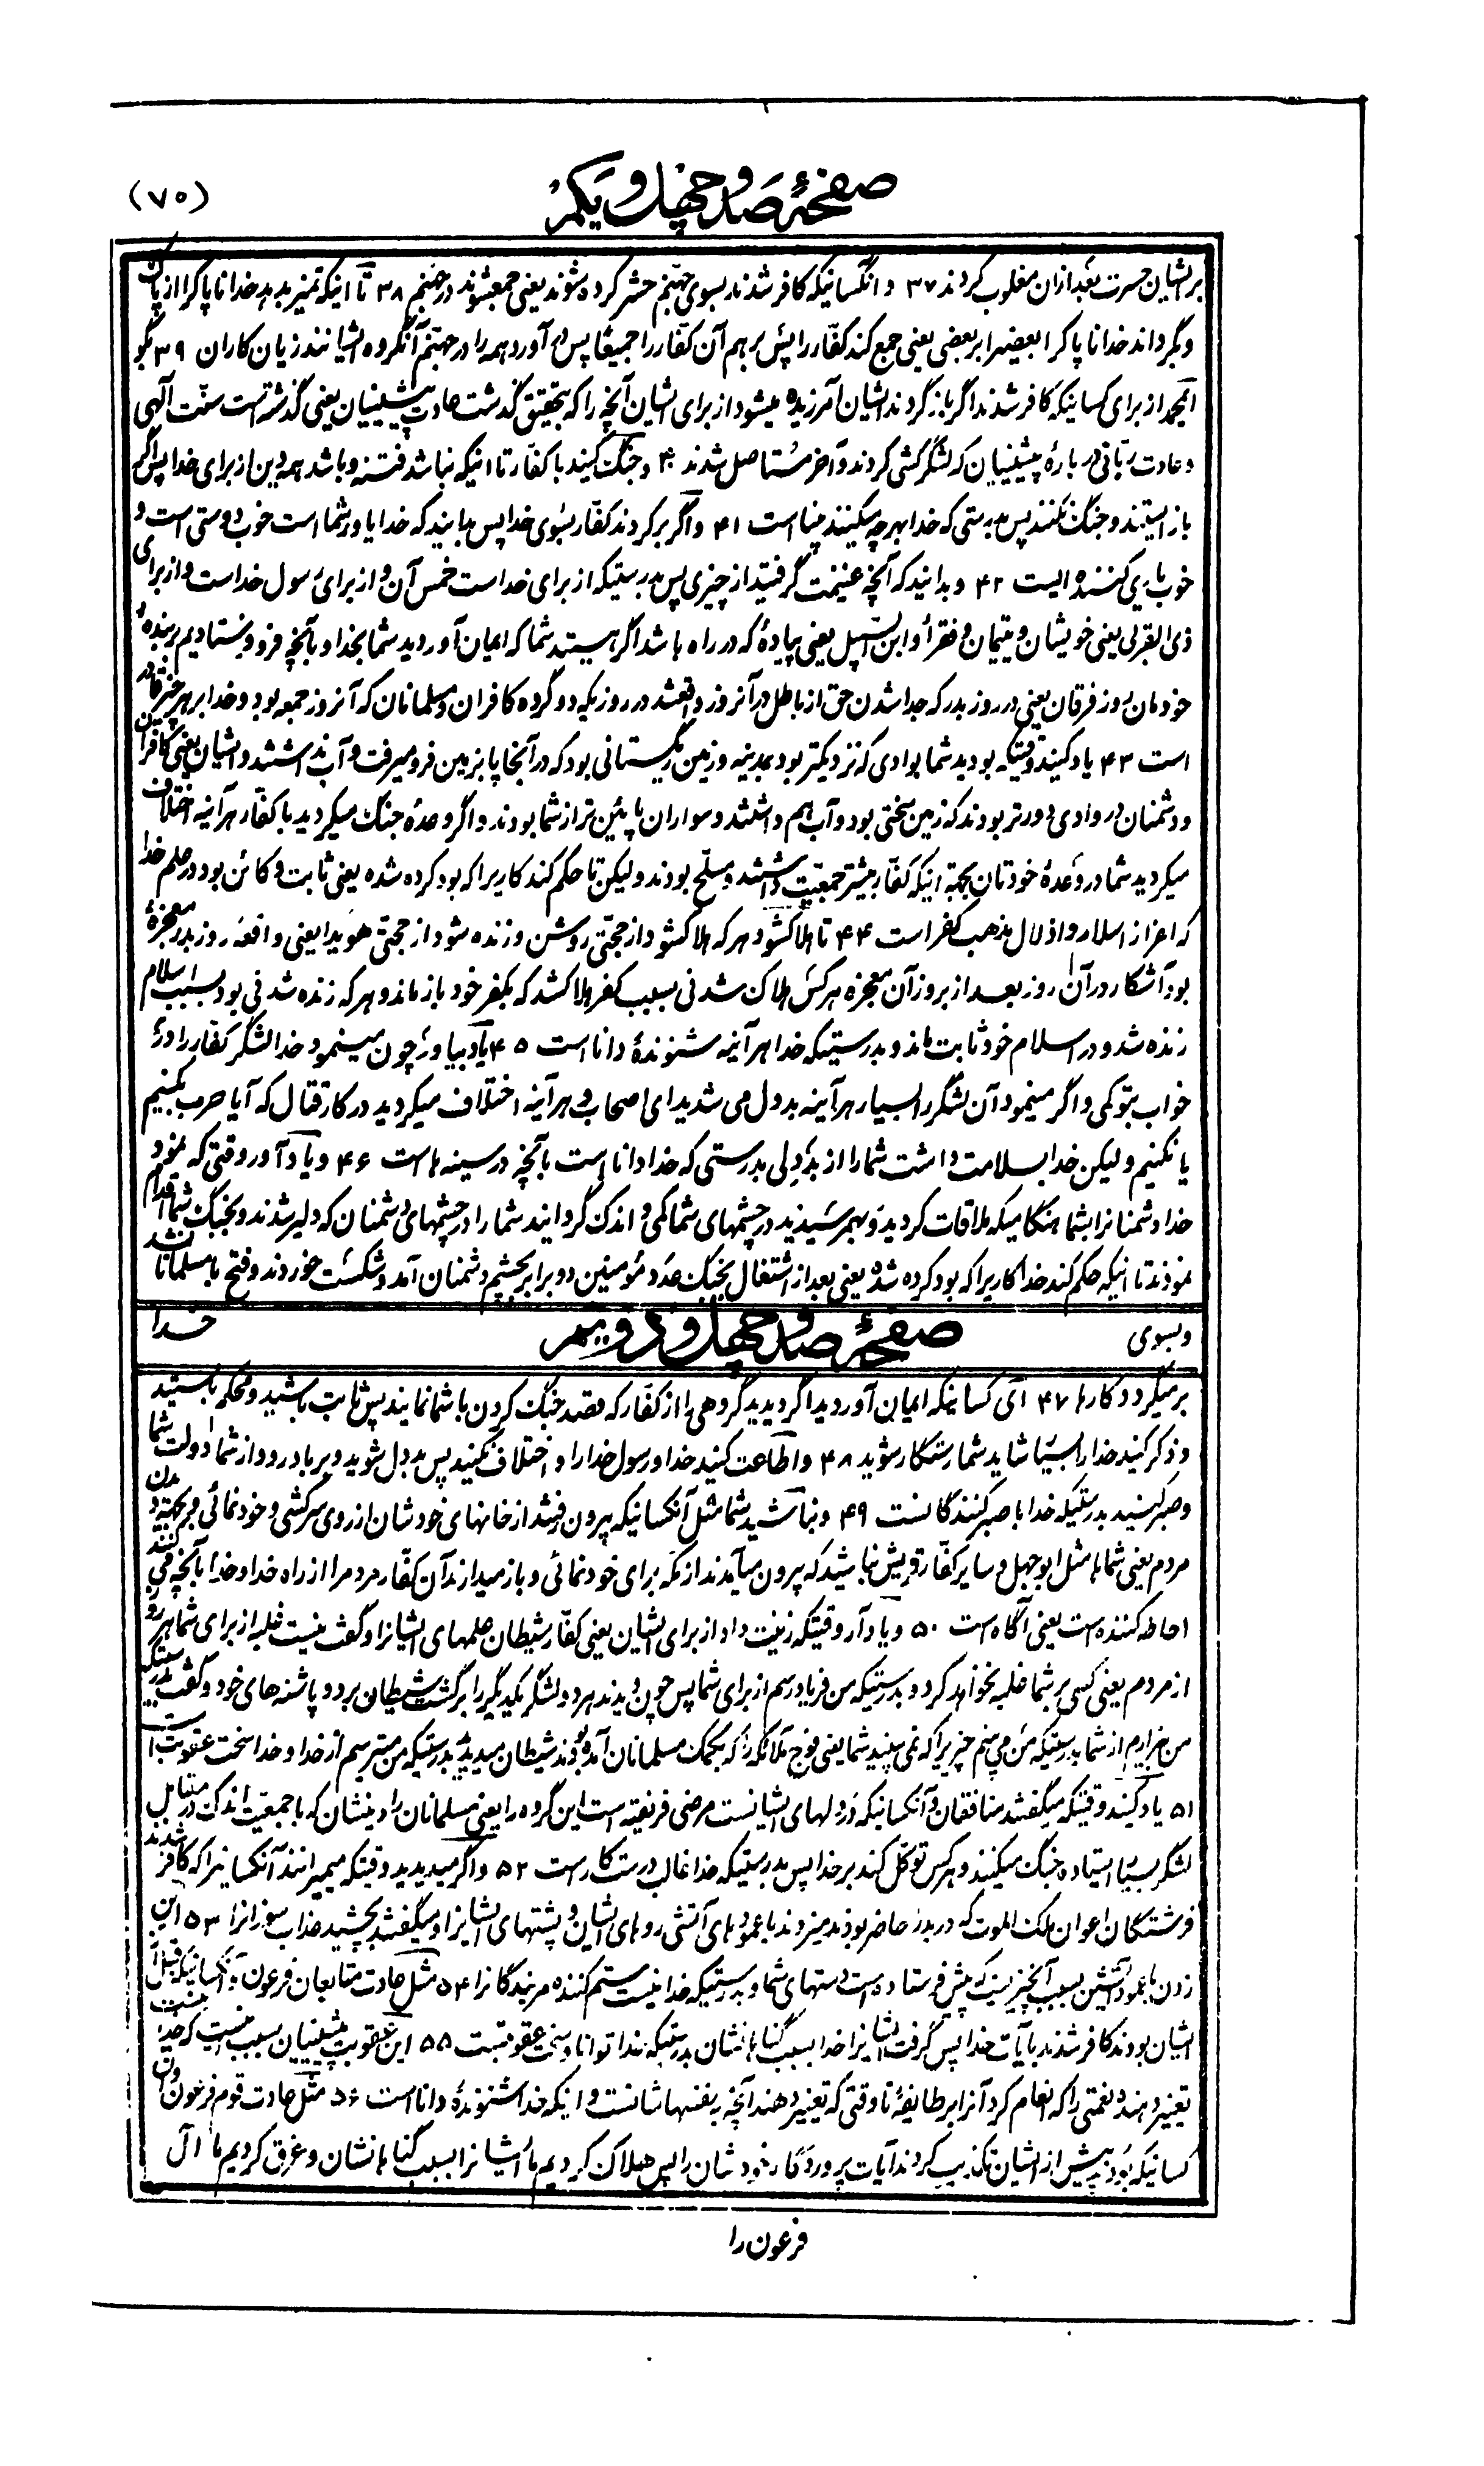 (۷۵)
صفحهٔ صد و چهل و یکم
بر ایشان حسرت بعد ازان مغلوب کردند ۳۷ و آنکسانیکه کافر شدند بسوی جهنم حشر کرده شوند یعنی جمع شوند در جهنم ۳۸ تا اینکه تمیز بدهد خدا ناپاکرا از پاک
و بگرداند خدا ناپاکرا بعضیرا بر بعضی یعنی جمع کند کفّار را پس بر هم آن کفّار را جمیعًا پس در آورد همه را در جهنم آنگروه ایشانند زیان کاران ۳۹ بگو
ایمحمد از برای کسانیکه کافر شدند اگر باز گردند ایشان آمرزیده میشود از برای ایشان آنچه را که بتحقیق گذشت عادت پیشینیان یعنی گذشته است سنّت آلهی
و عادت ربّانی در بارهٔ پیشینیان که لشگر کشی کردند و آخر مستاصل شدند ۴۰ و جنگ کنید با کفّار تا اینکه نباشد فتنه و باشد همه دین از برای خدا پس اگر
باز ایستند و جنگ نکنند پس بدرستی که خدا بهر چه میکنند بینا است ۴۱ و اگر بر کردند کفّار بسوی خدا پس بدانید که خدا یاور شما است خوب دوستی است و
خوب یاری کننده ایست ۴۲ و بدانید که آنچه غنیمت گرفتید از چیزی پس بدرستیکه از برای خداست خمس آن و از برای رسول خداست و از برای
ذی القربی یعنی خویشان و یتیمان و فقرا و ابن السّبیل یعنی پیادهٔ که در راه باشد اگر هستید شما که ایمان آوردید شما بخدا و بآنچه فرو فرستادیم بر بندهٔ
خودمان روز فرقان یعنی در روز بدر که جدا شدن حق از باطل در آنروز واقعشد در روزیکه دو گروه کافران و مسلمانان که آنروز جمعه بود و خدا بر هر چیز قادر
است ۴۳ یاد کنید وقتیکه بودید شما بوادی که نزدیکتر بود بمدینه و زمین ریگستانی بود که در آنجا پا بزمین فرو میرفت و آب نداشتند و ایشان یعنی کافران
و دشمنان در وادی دورتر بودند که زمین سختی بود و آب هم داشتند و سواران پائین تر از شما بودند و اگر وعدهٔ جنگ میکردید با کفّار هر آینه اختلاف
میکردید شما در وعدهٔ خودتان بجهته اینکه کفّار بیشتر جمعیّت داشتند و مسلّح بودند ولیکن تا حکم کند کاریرا که بود کرده شده یعنی ثابت و کائن بود در علم خدا
که اعزاز اسلام و اذلال مذهب کفر است ۴۴ تا هلاکشود هر که هلاکشود از حجّتی روشن و زنده شود از حجّتی هویدا یعنی واقعه روز بدر معجزهٔ
بود آشکار در آن روز بعد از بروز آن معجزه هر کس هلاک شدنی بسبب کفر هلاکشد که بکفر خود باز ماند و هر که زنده شدنی بود بسبب اسلام
زنده شد و در اسلام خود ثابت ماند و بدرستیکه خدا هر آینه شنوندهٔ دانا است ۴۵ یاد بیاور چون مینمود خدا لشگر کفّار را در
خواب بتو کمی و اگر مینمود آن لشگر را بسیار هر آینه بد دل می شدید ای اصحاب و هر آینه اختلاف میکردید در کار قتال که آیا حرب بکنیم
یا نکنیم ولیکن خدا بسلامت داشت شما را از بددلی بدرستی که خدا دانا است بآنچه در سینه ها است ۴۶ و یاد آور وقتی که نمود
خدا دشمنانرا بشما هنگامیکه ملاقات کردید و بهم رسیدید در چشمهای شما کمی و اندک گردانید شما را در چشمهای دشمنان که دلیر شدند و بجنگ شما اقدام
نمودند تا اینکه حکم کند خدا کاریرا که بود کرده شده یعنی بعد از اشتغال بجنگ عدد مؤمنین دو برابر بچشم دشمنان آمد و شکست خوردند و فتح با مسلمانان شد
و بسوی صفحهٔ صد و چهل و دویم خدا
بر میگردد کارها ۴۷ ای کسانیکه ایمان آوردید اگر دیدید گروهی را از کفّار که قصد جنگ کردن با شما نمایند پس ثابت باشید و محکم بایستید
و ذکر کنید خدا را بسیار شاید شما رستگار شوید ۴۸ و اطاعت کنید خدا و رسول خدا را و اختلاف نکنید پس بد دل شوید و بر باد رود از شما دولت شما
و صبر کنید بدرستیکه خدا با صبر کنندگانست ۴۹ و نباشید شما مثل آنکسانیکه بیرون رفتند از خانهای خودشان از روی سرکشی و خودنمائی و بجهته دیدن
مردم یعنی شماها مثل ابوجهل و سایر کفّار قریش نباشید که بیرون میآمدند از مکّه برای خودنمائی و باز میدارند آن کفّار مردمرا از راه خدا و خدا بآنچه می کنند
احاطه کننده است یعنی آگاه است ۵۰ و یاد آر وقتیکه زینت داد از برای ایشان یعنی کفّار شیطان عملهای ایشانرا و گفت نیست غلبه از برای شما امروز
از مردم یعنی کسی بر شما غلبه نخواهد کرد و بدرستیکه من فریادرسم از برای شما پس چون دیدند هر دو لشگر یکدیگر را برگشت شیطان بر دو پاشنه های خود و گفت بدرستیکه
من بیزارم از شما بدرستیکه من می بینم چیزیرا که نمی بینید شما یعنی فوج ملائکه را که بکمک مسلمانان آمده بودند شیطان میدید بدرستیکه من میترسم از خدا و خدا سخت عقوبت است
۵۱ یاد کنید وقتیکه میگفتند منافقان و آنکسانیکه در دلهای ایشانست مرضی فریفته است این گروه را یعنی مسلمانان را دینشان که با جمعیّت اندک در مقابل
لشگر بسیار ایستاده جنگ میکنند و هر کس توکّل کند بر خدا پس بدرستیکه خدا غالب درست کار است ۵۲ و اگر میدیدید وقتیکه میمیرانند آنکسانیرا که کافر شدند
فرشتگان اعوان ملک الموت که در بدر حاضر بودند میزدند با عمودهای آتشی روهای ایشان و پشتهای ایشانرا و میگفتند بچشید عذاب سوزانرا ۵۳ این
زدن با عمود آتشین بسبب آنچیزیست که پیش فرستاده است دستهای شما و بدرستیکه خدا نیست ستم کننده مر بندگانرا ۵۴ مثل عادت متابعان فرعون و آنکسانیکه قبل از
ایشان بودند کافر شدند بآیات خدا پس گرفت ایشانرا خدا بسبب گناهانشان بدرستیکه خدا توانا و سخت عقوبتست ۵۵ این عقوبت پیشینیان بسبب اینست که خدا نیست
تغییر دهنده نعمتی را که انعام کرد آنرا بر طایفهٔ تا وقتی که تغییر دهند آنچه بنفسهاشانست و اینکه خدا شنوندهٔ دانا است ۵۶ مثل عادت قوم فرعون و آن
کسانیکه بودند پیش از ایشان تکذیب کردند آیات پروردگار خودشان را پس هلاک کردیم ما ایشانرا بسبب گناهانشان و غرق کردیم ما آل
فرعون را